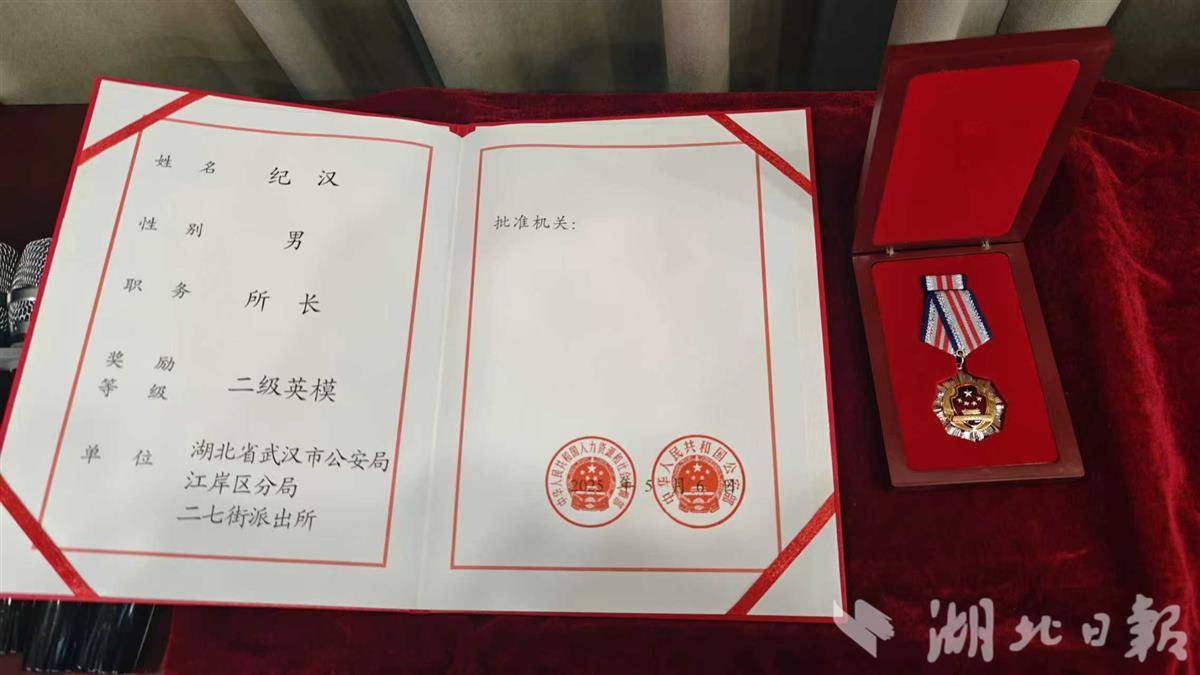 姓名 纪汉
性别 男
职务 所长
奖励
等级 二级英模
单位 湖北省武汉市公安局
江岸区分局
二七街派出所
批准机关：
中华人民共和国人力资源和社会保障部
中华人民共和国公安部
2025年5月6日
湖北日报